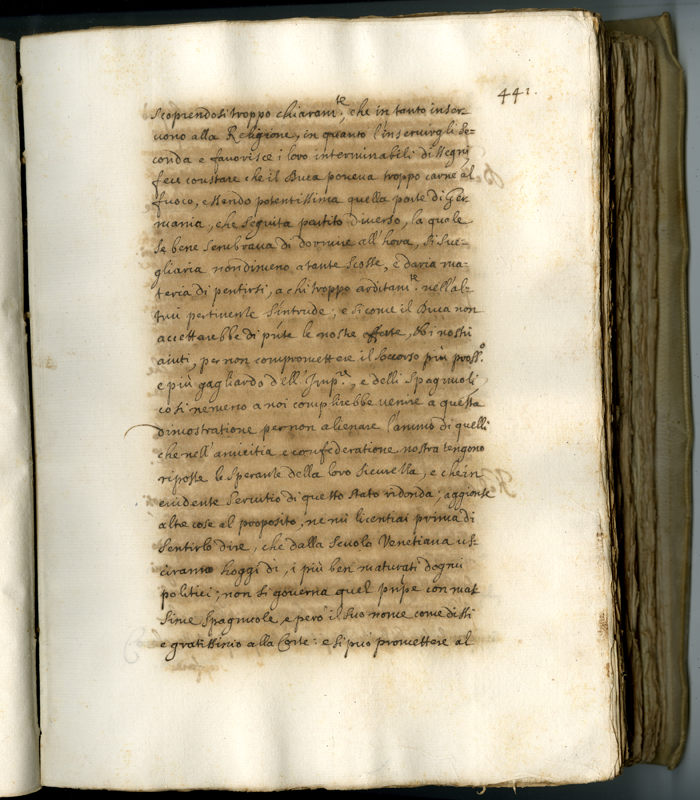 441.
Scoprendosi troppo chiaram.te, che in tanto inser-
vono alla Religione, in quanto l'inservirgli se=
conda e favorisce i loro interminabili dissegni
feci constare che il Duca poneva troppo carne al
fuoco, essendo potentissima quella parte di Ger
mania, che seguita partito diverso, la quale
se bene sembrava di dormire all'hora, si sve=
gliaria nondimeno a tante scosse, e daria ma-
teria di pentirsi, a chi troppo arditam.te nell'al-
trui pertinente s'intrude; e si come il Duca non
accettarebbe di p'nte le nostre offerte, è i nostri
aiuti, per non compromettere il soccorso più pross.o
e più gagliardo dell'Imp.re, e delli Spagnuoli,
cosi nemeno a noi complirebbe venire a questa
dimostratione per non alienare l'animo di quelli
che nell'amicitia e confederatione nostra tengono
riposte le speranze della loro sicurezza, e che in
evidente servitio di questo stato ridonda; aggionte
altre cose al proposito, ne mi licentiai prima di
sentirlo dire, che dalla scuola Venetiana us-
civano hoggi dì, i più ben maturati dogmi
politici; non si governa quel pn'pe con mas
sime Spagnuole, e però il suo nome come dissi
e gratissimo alla Corte: e si può promettere al